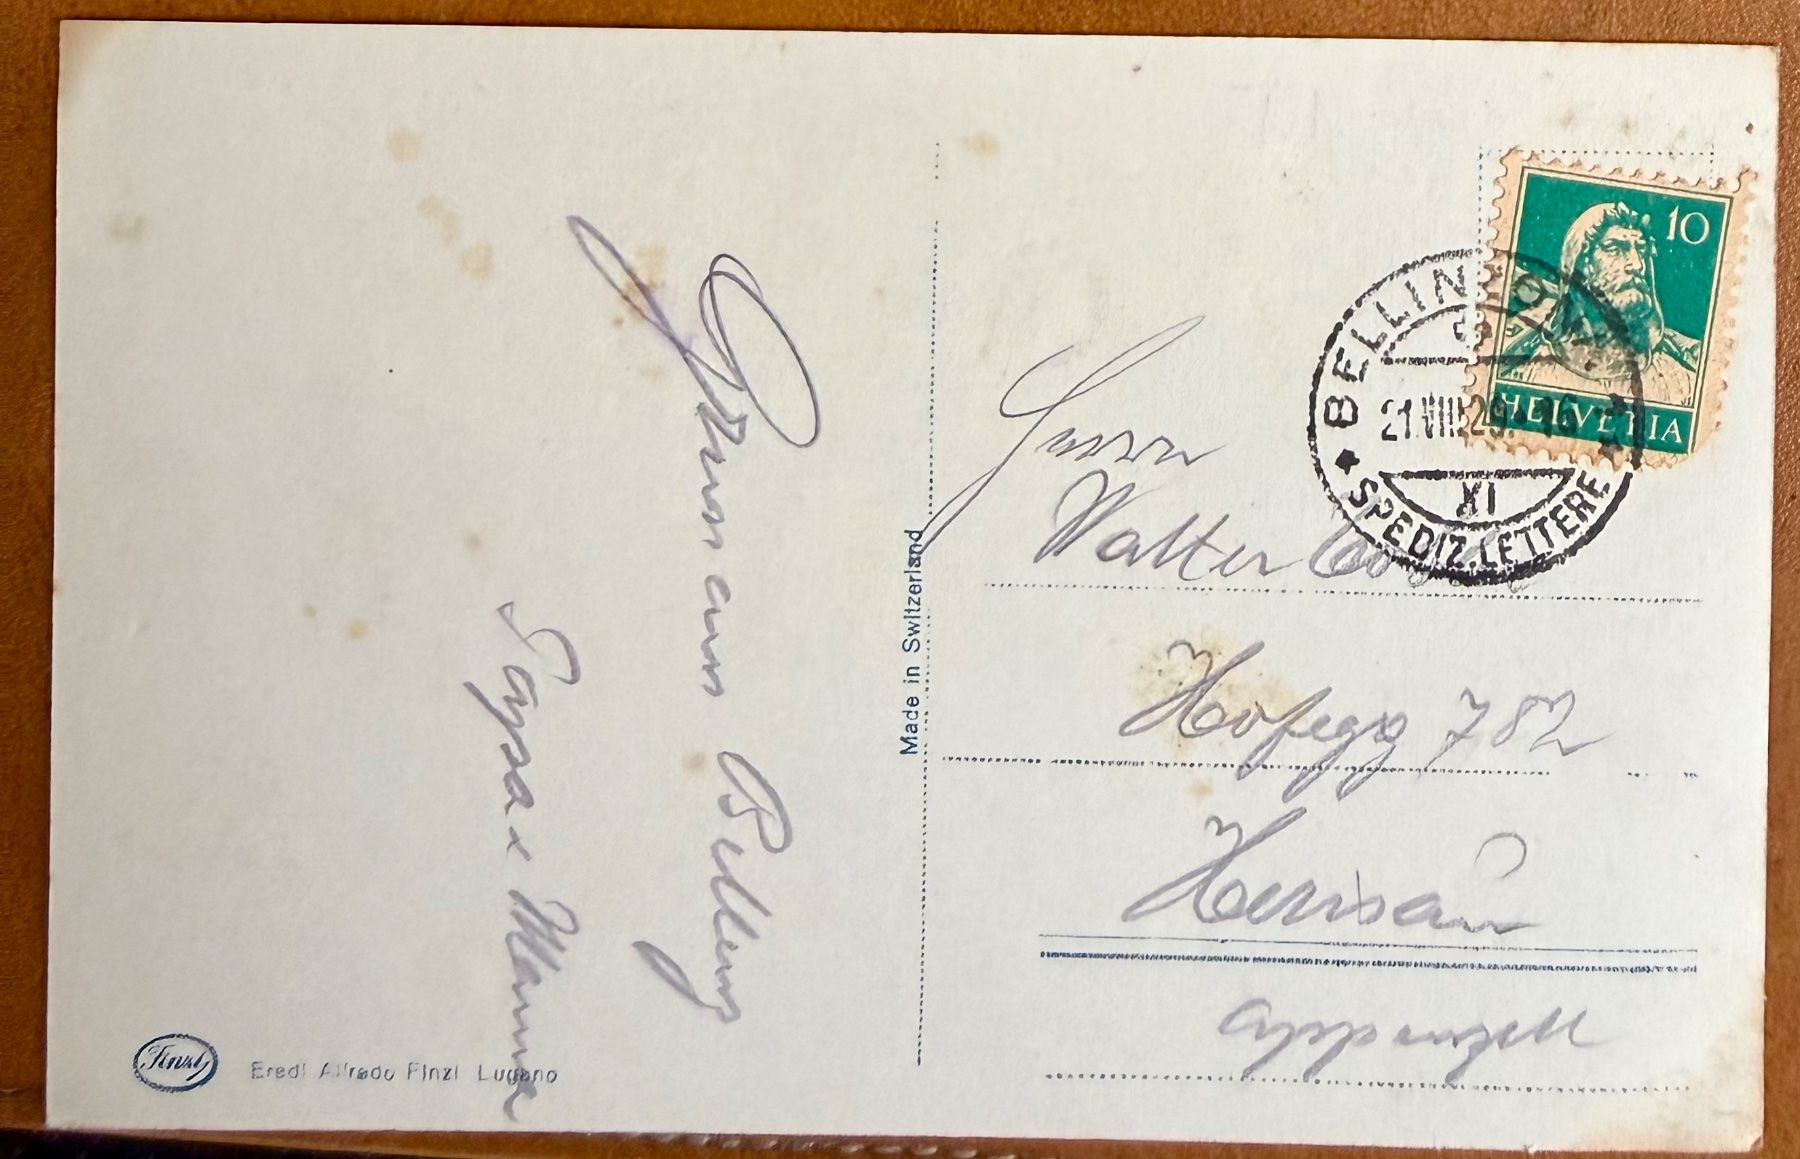 Gruss aus Bellenz
Papa & Mama
Made in Switzerland
Finzi
Eredi Alfredo Finzi Lugano
10
HELVETIA
BELLINZONA
21.VIII.29.-16
XI
SPEDIZ. LETTERE
Herrn
Walter
Hofegg 782
Herisau
Appenzell